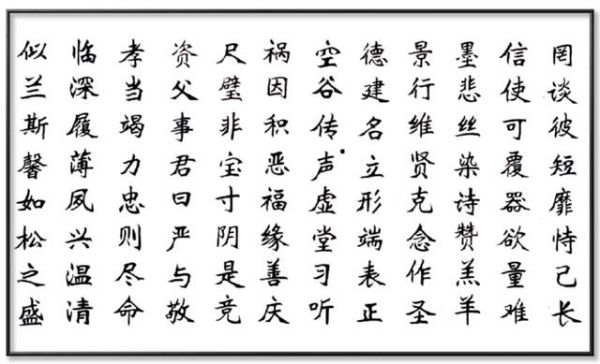 罔谈彼短靡恃己长
信使可覆器欲量难
墨悲丝染诗赞羔羊
景行维贤克念作圣
德建名立形端表正
空谷传声虚堂习听
祸因积恶福缘善庆
尺璧非宝寸阴是竞
资父事君曰严与敬
孝当竭力忠则尽命
临深履薄夙兴温清
似兰斯馨如松之盛